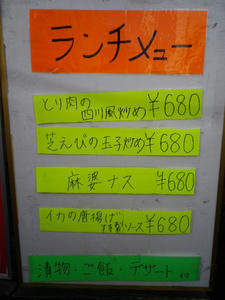 ランチメュー
とり肉の
四川風炒め ¥680
芝えびの玉子炒め ¥680
麻婆ナス ¥680
イカの唐揚げ
特製ソース ¥680
漬物・ご飯・デザート 付